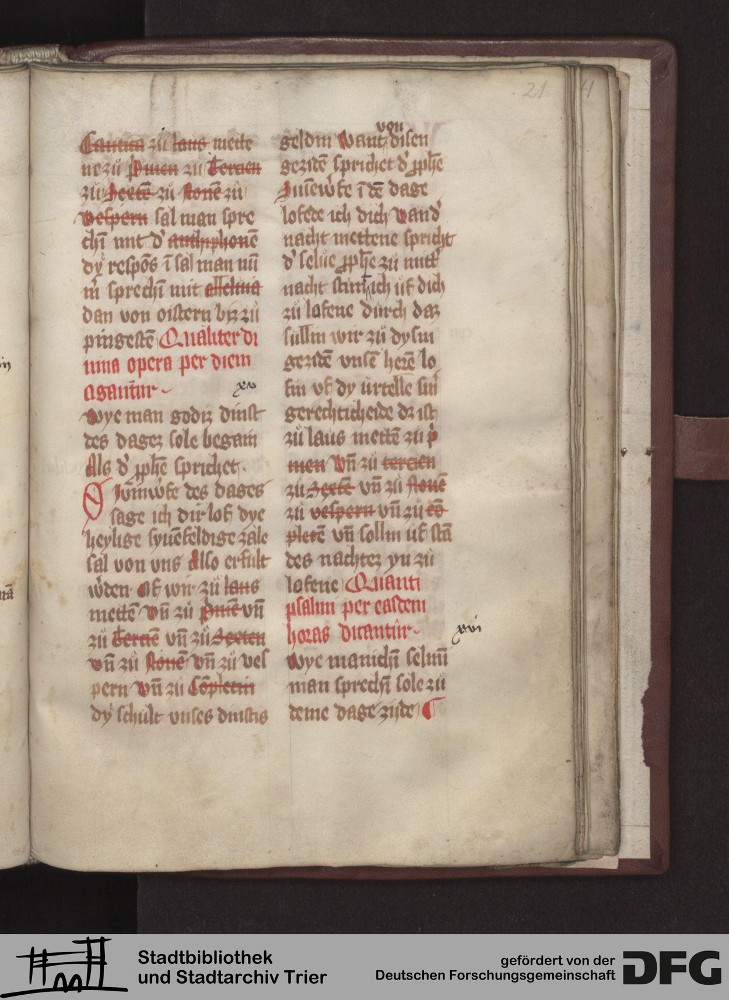 21
Cantica zü laus mette
ne zü Primen zü Tercien
zü Sextē zü Nonē zü
vespern sal man spre
chī mit d' anthiphonē
dÿ respōs ī sal man nūī
m̄ sprechī mit alleluia
dan von oistern bÿz zü
pingestē Qualiter di
uina opera per diem
agantur xv
Wye man godiz dinst
des dagez sole begain
Als d' ꝓphē sprichet
Siuīnwrfe des dages
sage ich dir lof dye
heylige syuēfeldige zale
sal von vns Also erfult
wden Of wir zü laus
mettē vn̄ zü Primē vn̄
zü Terciē vn̄ zü Sexten
vn̄ zü Nonē vn̄ zü ves
pern vn̄ zü Cōpletin
dÿ schült vnses dinstis
geldin want von disen
gezidē sprichet d' ꝓphē
Siuīewrfe ī dē dage
lofede ich dich vand'
nacht mettene spricht
d' selue ꝓphē zü mitt'
nacht stūt ich üf dich
zü lofene dürch daz
sullin wir zü dysin
gezidē vnsē herē lo
fin vf dy ürtelle sin'
gerechticheide dz ist
zü laus mettē zü p̄
men vn̄ zü tercien
zü Sextē vn̄ zü Nonē
zü vespern vn̄ zü cō
pletē vn̄ sollin üf stā
des nachtez yn zü
lofene Quanti
psalmi per easdem
horas dicantur xvi
Wye manichī selmī
man sprechī sole zü
deme dage zijde
Stadtbibliothek
und Stadtarchiv Trier
gefördert von der
Deutschen Forschungsgemeinschaft
DFG